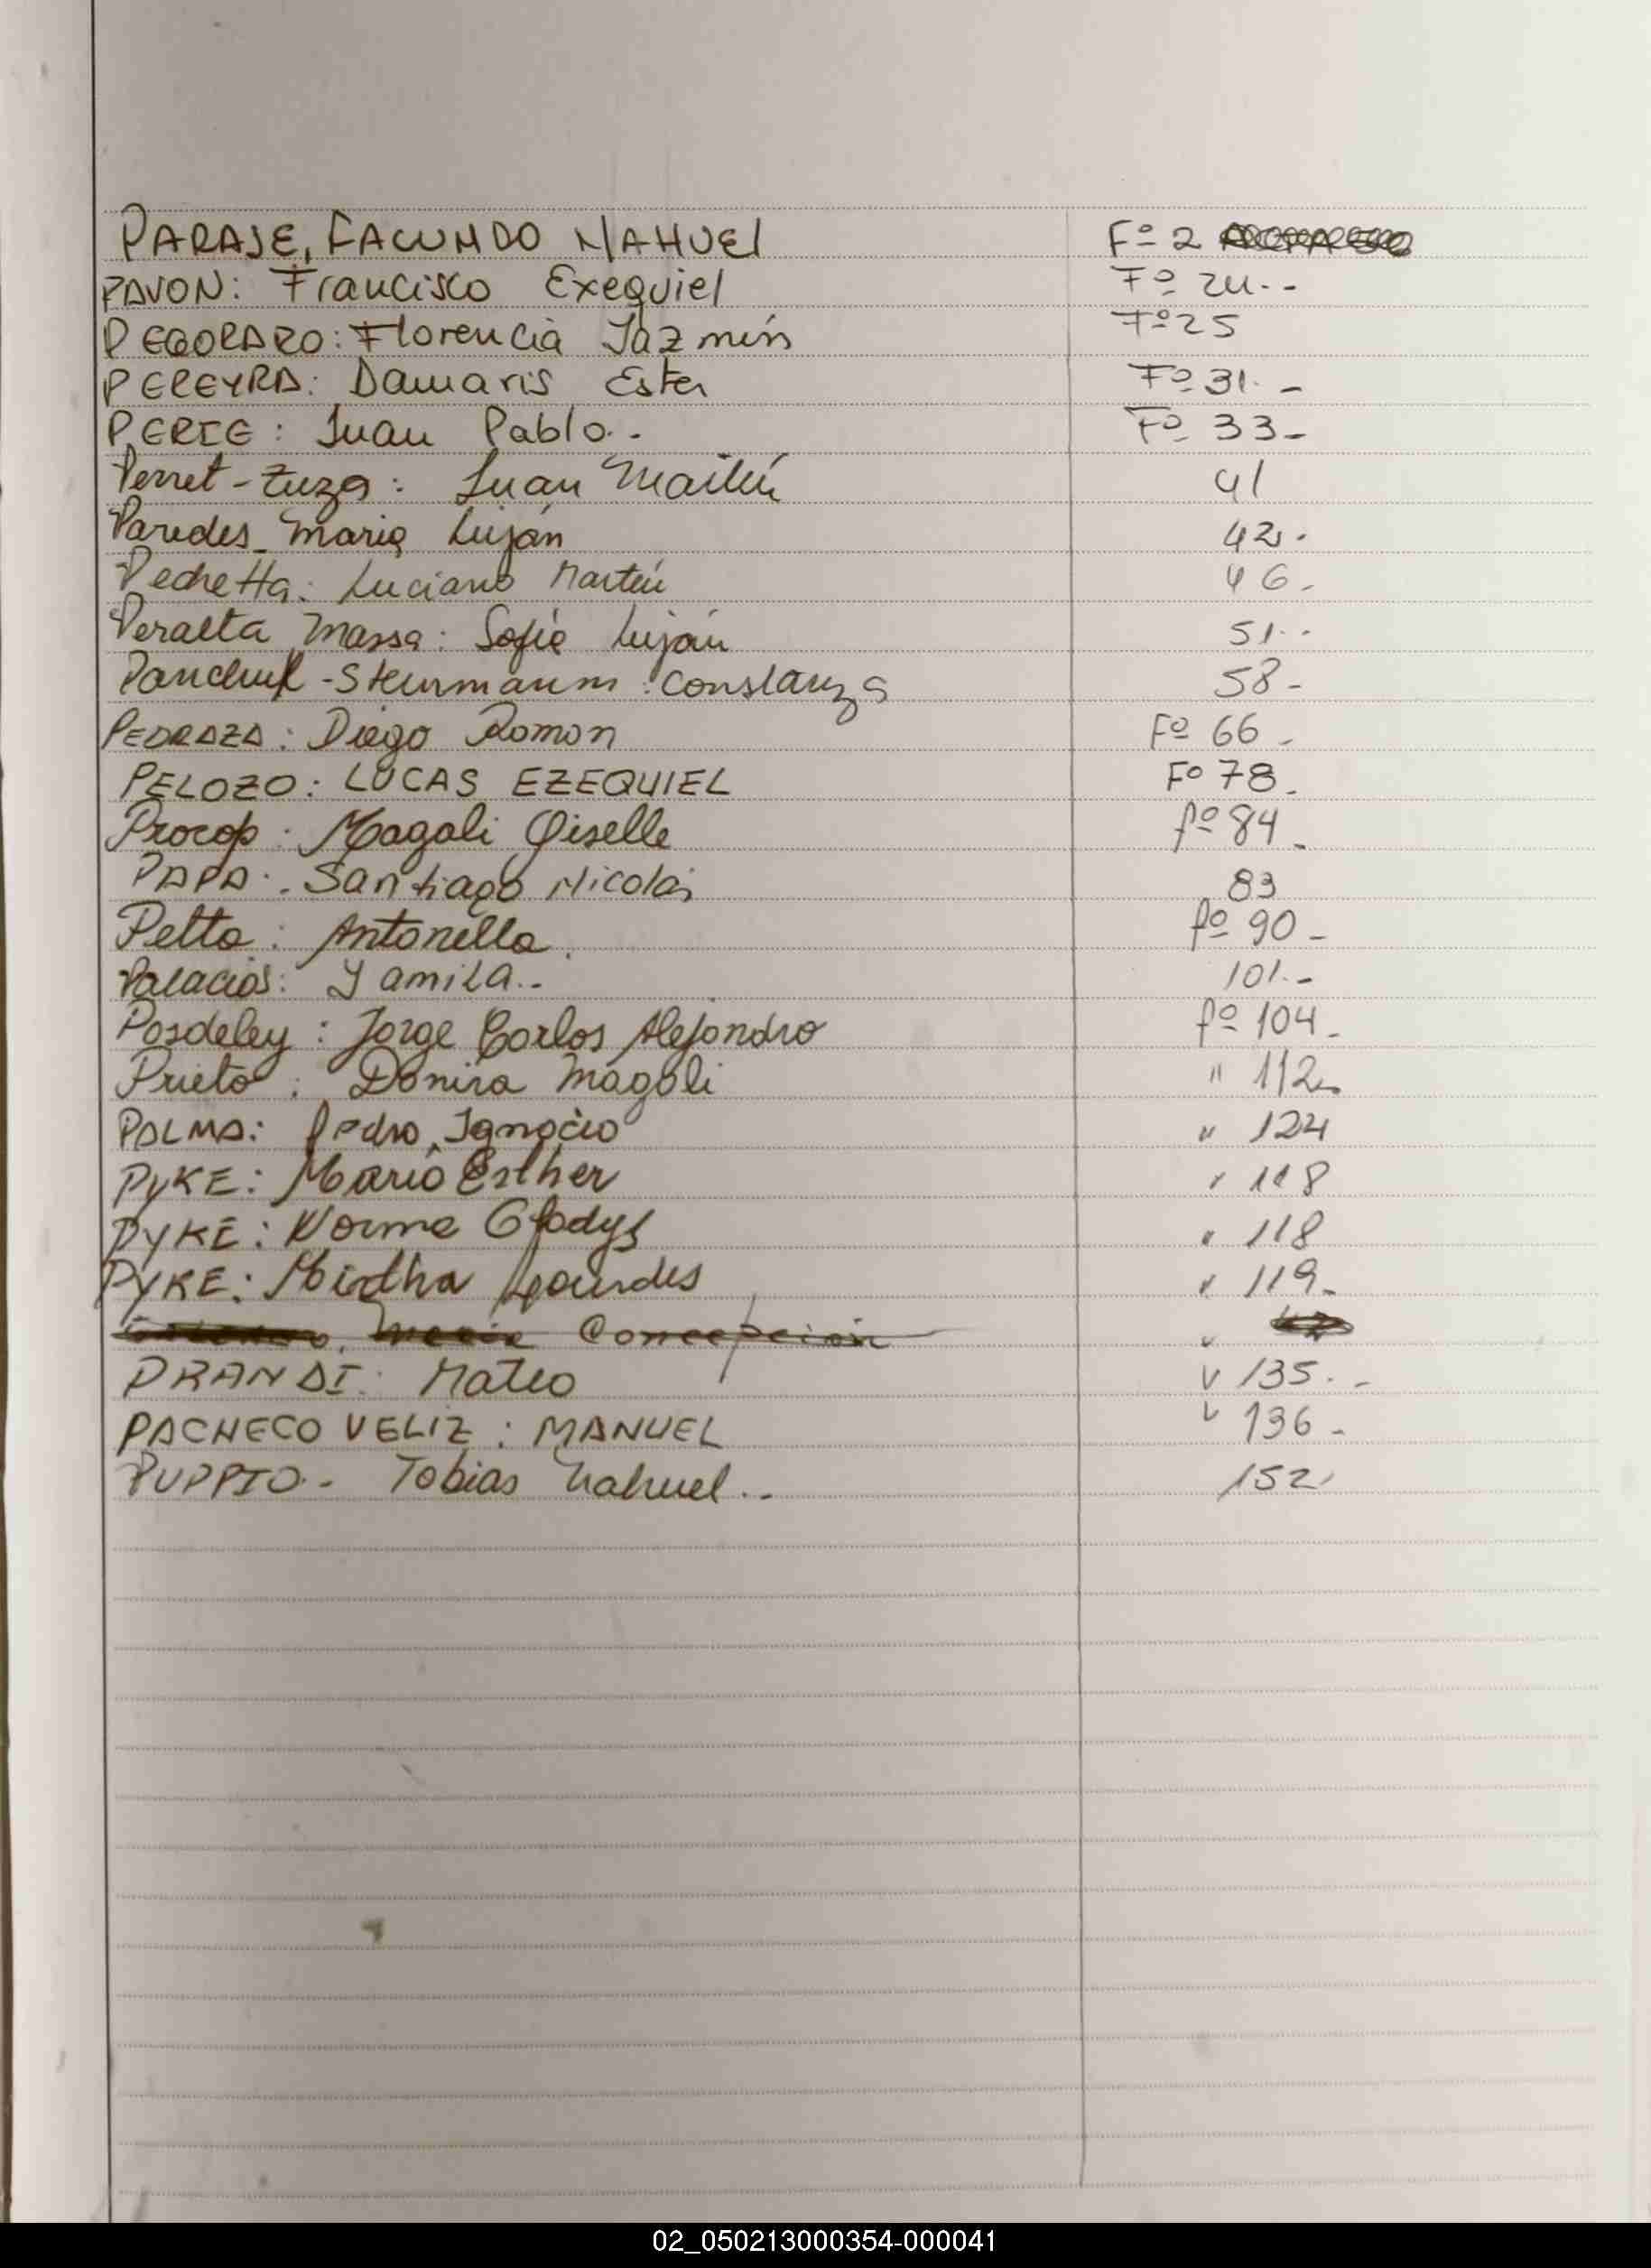 PARAJE, FACUNDO NAHUEl Fº 2
PAVON: Francisco Exequiel Fº 24.-
PEGORARO: Florencia Jazmín Fº 25
PEREYRA: Damaris Ester Fº 31.-
PERTE: Juan Pablo.- Fº 33-
Perret-Zuza: Juan Martín 41
Paredes- Maria Luján 42.
Pechetta: Luciano Martín 46-
Peralta Massa: Sofia Luján 51.-
Panchuk-Steurmann: Constanza 58-
PEDRAZA: Diego Roman Fº 66-
PELOZO: LUCAS EZEQUIEL Fº 78-
Procop: Magali Giselle fº 84-
PAPA: Santiago Nicolás 83
Petta: Antonella. fº 90-
Palacios: Yamila.- 101.-
Posdeley: Jorge Carlos Alejandro fº 104-
Prieto: Danira Magali " 112-
PALMA: Pedro Ignacio " 124
PYKE: Maria Esther " 118
PYKE: Norma Gladys " 118
PYKE: Mirtha Lourdes " 119-
Maria Concepción "
PRANDI: Mateo " 135.-
PACHECO VELIZ: MANUEL " 136-
PUPPIO- Tobias Nahuel.- 152
02_050213000354-000041